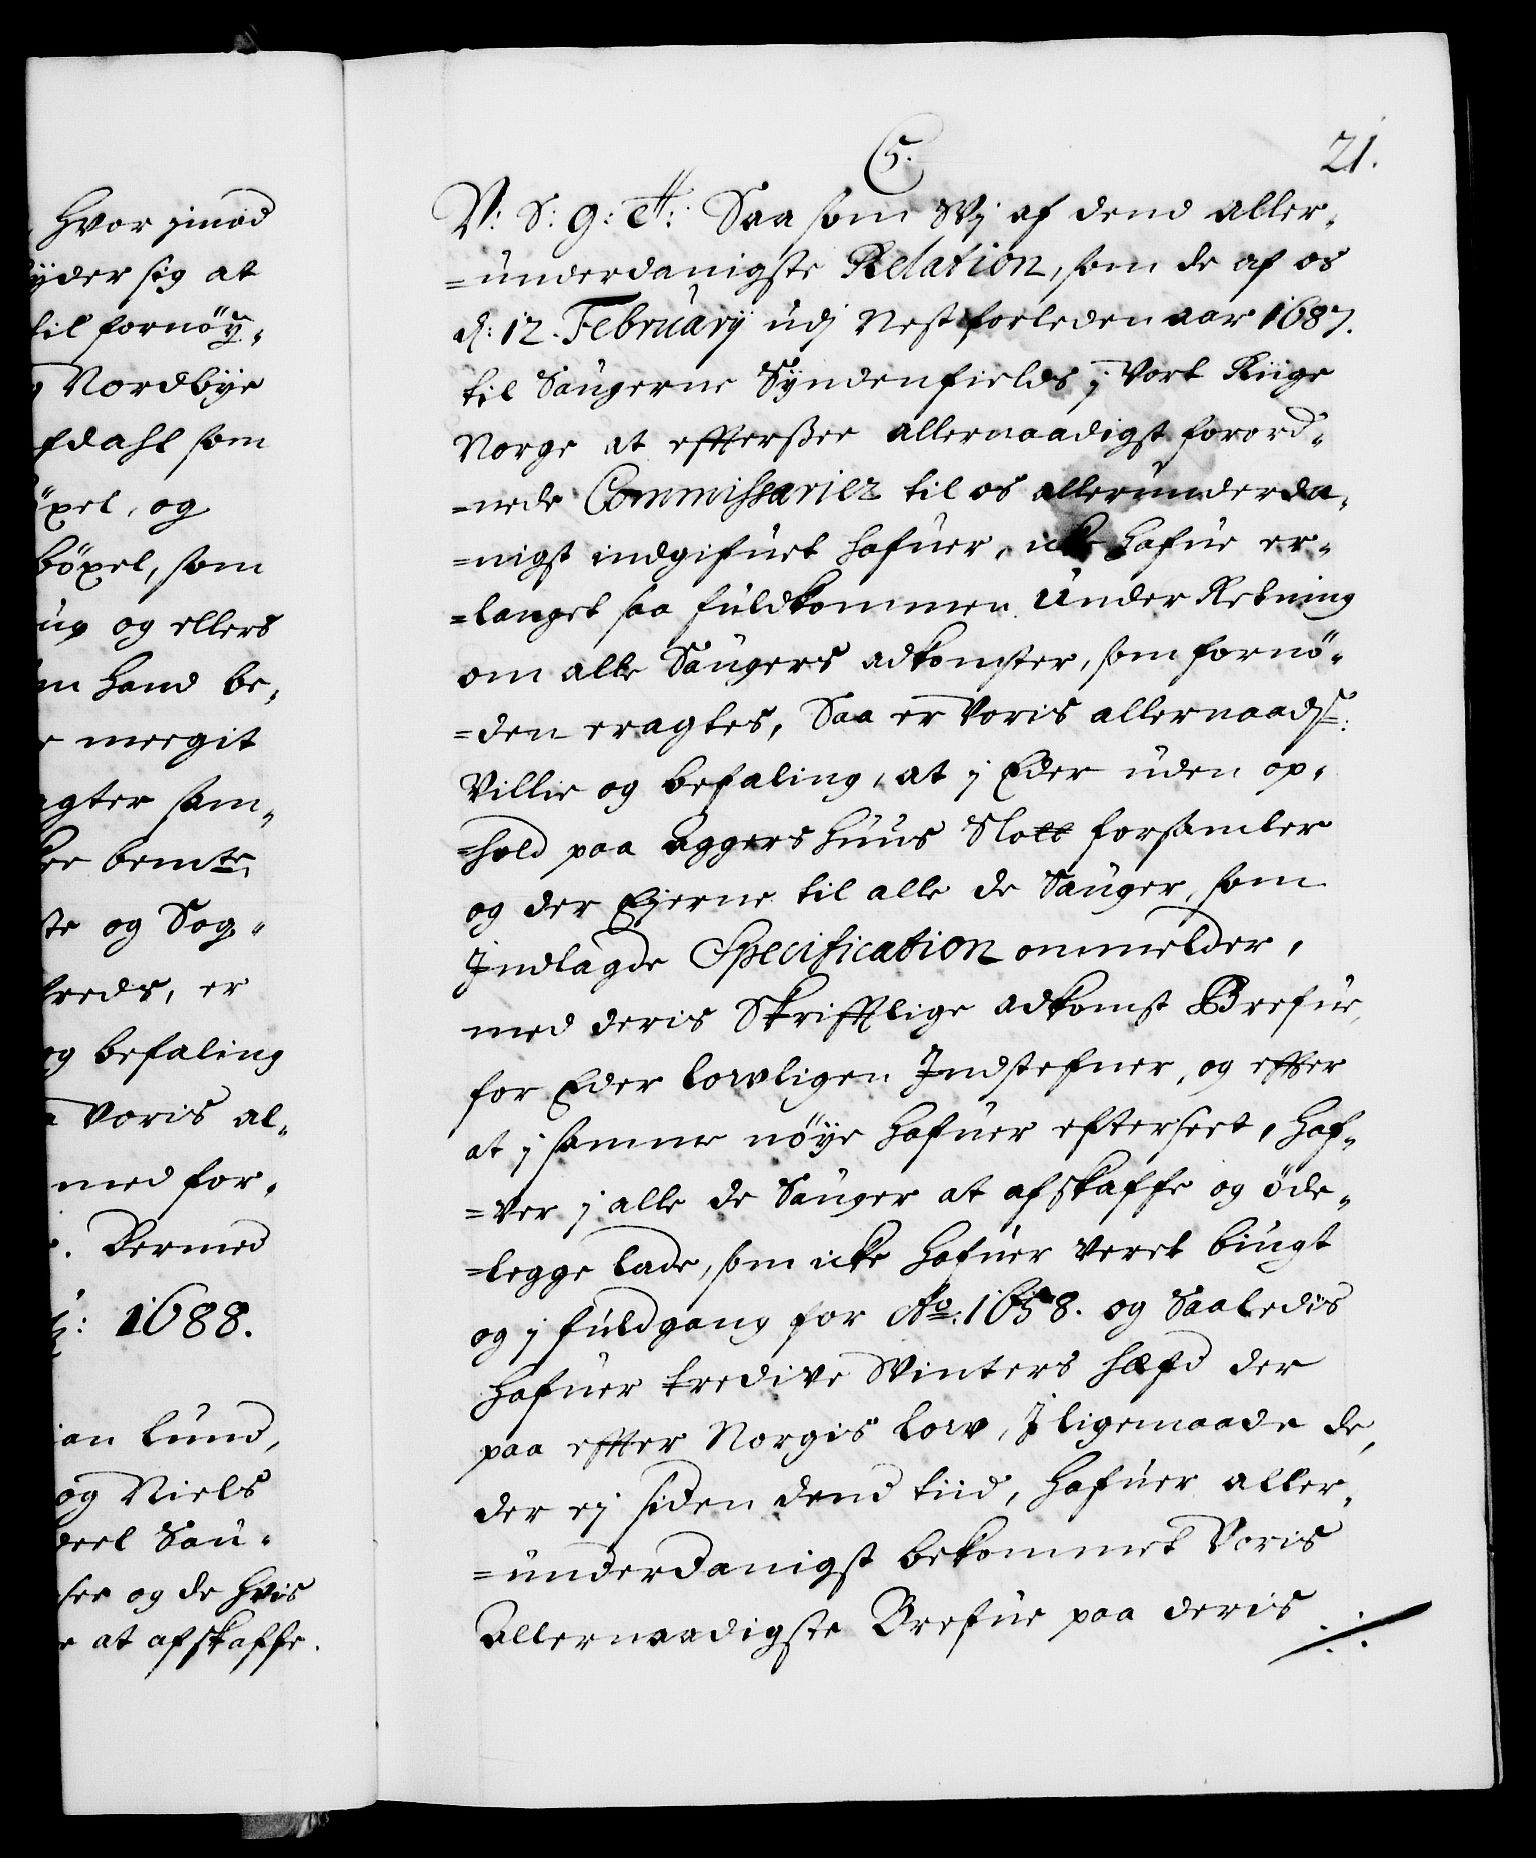 Hvor jmod
yder sig at
til fornöy-
Nordbÿe
fdahl som
öxel, og
böxel, som
og ellers
hand be-
meegit
agter sam-
bemte
te og Sog-
leeds, er
og befaling
Voris al-
med for-
. Dermed
1688.
ian Lund,
og Niels
deel Sau-
see og de hvis
at afskaffe.
5.
21.
V: S: G: A: Saasom Wj af dend aller-
=underdanigste Relation, som de af os
d: 12. Februarÿ udj Nestforleden aar 1687.
til Saugerne Syndenfields j Vort Riige
Norge at effterßee allernaadigst forord-
=nede Commissarier til os allerunderda-
=nigst indgifuet hafuer, icke hafue er-
=langet saa fuldkommen Under Retning
om alle Saugers adkomster, som fornö-
=den eragtes, Saa er Voris allernaadst:
Villie og befaling, at j Eder uden op-
=hold paa Aggershuus Slott forsamler
og der Ejerne til alle de Sauger, som
Indlagde Specification ommelder,
med deris Skrifftlige adkomst Brefue,
for Eder lowligen Indstefner, og effter
at j samme nöye hafuer efterseet, haf-
=ver j alle de Sauger at afskaffe og öde-
=legge lade, som icke hafuer veret biugt
og j fuldgang for Ao. 1658. og Saaledis
hafuer tredive Winters hæfd der
paa effter Norgis Low, J ligemaade de,
der ej siden dend tiid, hafuer aller-
=underdanigst bekommet Voris
Allernaadigste Brefue paa deris ./.